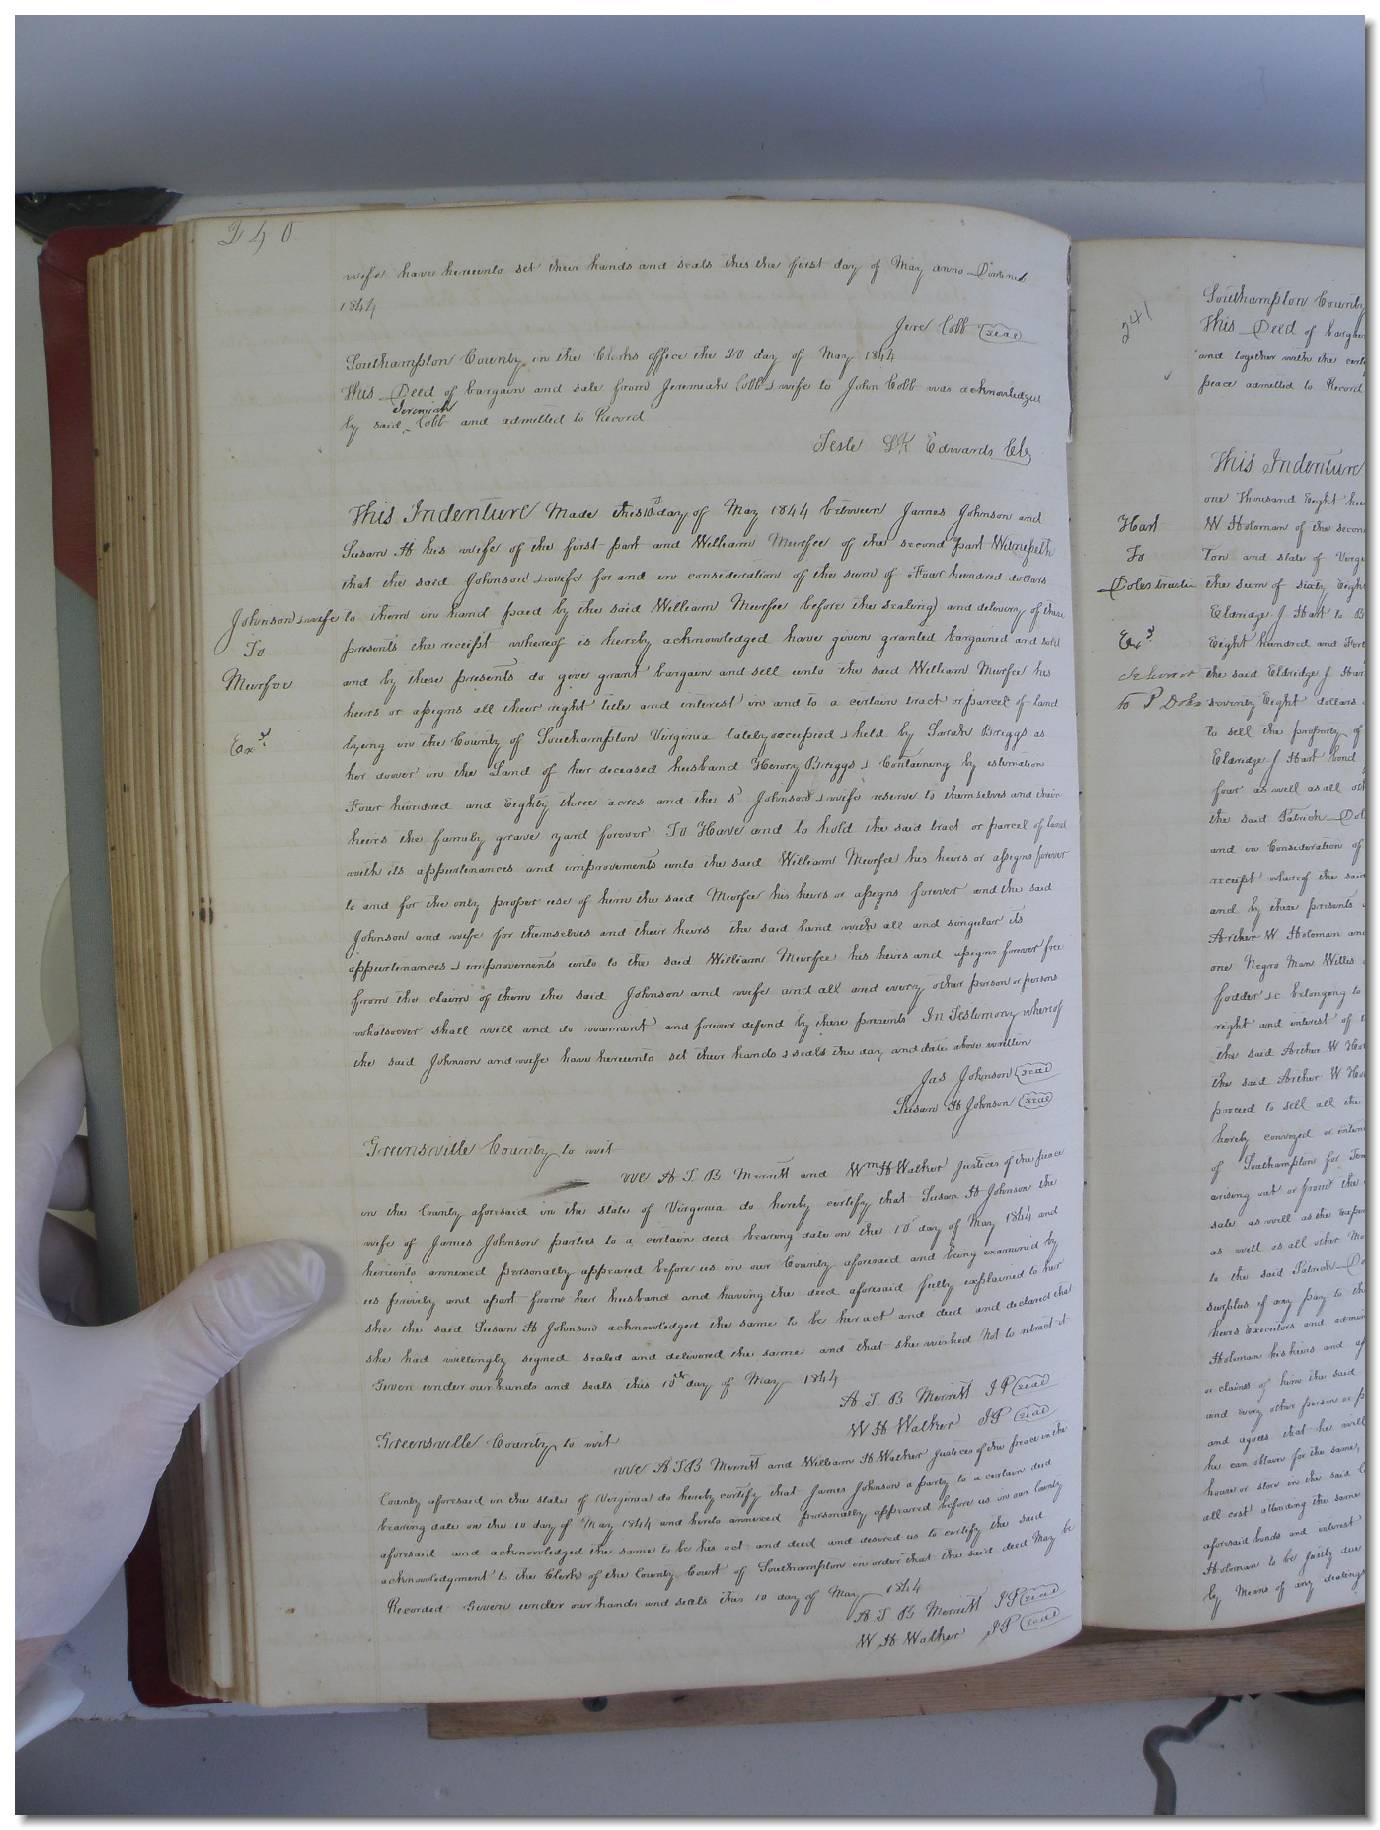 240
wife have hereunto set their hands and seals this the first day of May anno Domini
1844
Jere Cobb seal
Southampton County in the Clerks office the 20 day of May 1844
This Deed of bargain and sale from Jeremiah Cobb & wife to John Cobb was acknowledged
by said Jeremiah Cobb and admitted to Record
Teste L R Edwards Clk
This Indenture Made this 10 day of May 1844 between James Johnson and
Susan H his wife of the first part and William Murfee of the second part Witnesseth
that the said Johnson & wife for and in consideration of the sum of Four hundred dollars
Johnson & wife
To
Murfee
Exd
to them in hand paid by the said William Murfee before the sealing and delivery of these
presents the receipt whereof is hereby acknowledged have given granted bargained and sold
and by these presents do give grant bargain and sell unto the said William Murfee his
heirs or assigns all their right title and interest in and to a certain tract or parcel of land
lying in the County of Southampton Virginia lately occupied & held by Sarah Briggs as
her dower in the Land of her deceased husband Henry Briggs & Containing by estimation
Four hundred and Eighty three acres and the sd Johnson & wife reserve to themselves and their
heirs the family grave yard forever To Have and to hold the said tract or parcel of land
with its appurtenances and improvements unto the said William Murfee his heirs or assigns forever
to and for the only proper use of him the said Murfee his heirs or assigns forever and the said
Johnson and wife for themselves and their heirs the said land with all and singular its
appurtenances & improvements unto to the said William Murfee his heirs and assigns forever free
from the claim of them the said Johnson and wife and all and every other person or persons
whatsoever shall will and do warrant and forever defend by these presents In Testimony whereof
the said Johnson and wife have hereunto set their hands & seals the day and date above written
Jas Johnson seal
Susan H Johnson seal
Greensville County to wit
We A T B Merritt and Wm H Walker Justices of the peace
in the County aforesaid in the state of Virginia do hereby certify that Susan H Johnson the
wife of James Johnson parties to a certain deed bearing date on the 10 day of May 1844 and
hereunto annexed personally appeared before us in our County aforesaid and being examined by
us privily and apart from her husband and having the deed aforesaid fully explained to her
she the said Susan H Johnson acknowledged the same to be her act and deed and declared that
she had willingly signed sealed and delivered the same and that she wished Not to retract it
Given under our hands and seals this 10th day of May 1844
A T B Merritt JP seal
W H Walker JP seal
Greensville County to wit
We A T B Merritt and William H Walker Justices of the peace in the
County aforesaid in the state of Virginia do hereby certify that James Johnson a party to a certain deed
bearing date on the 10 day of May 1844 and hereto annexed personally appeared before us in our County
aforesaid and acknowledged the same to be his act and deed and desired us to certify the said
acknowledgment to the Clerk of the County Court of Southampton in order that the said deed May be
Recorded Given under our hands and seals this 10 day of May 1844
A T B Merritt JP seal
W H Walker JP seal
241
Southampton County
This Deed of
and together with the
peace admitted to Record
This Indenture
one Thousand Eight
Hart
To
Doles trustee
Exd
to P Doles
W Holoman of the second
Ton and state of
the sum of sixty Eight
Eldridge J Hart to
Eight hundred and
the said Eldridge J
seventy Eight dollars
to sell the property of
Eldridge J Hart bond
four as well as all
the said Patrick
and in Consideration of
receipt whereof the said
and by these presents
Archer W Holoman and
one Negro Man Willis
fodder &c belonging to
right and interest of
the said Archer W
the said Archer W
proceed to sell all the
hereby conveyed or
of Southampton for
arising out or from the
sale as well as the
as well as all other
to the said Patrick
surplus if any pay to
heirs Executors and
Holoman his heirs and
or claims of him the said
and every other person or
and agrees that he will
he can obtain for the same,
house or store in the said
all cost attending the same
aforesaid bonds and interest
Holoman to be justly due
by Means of any